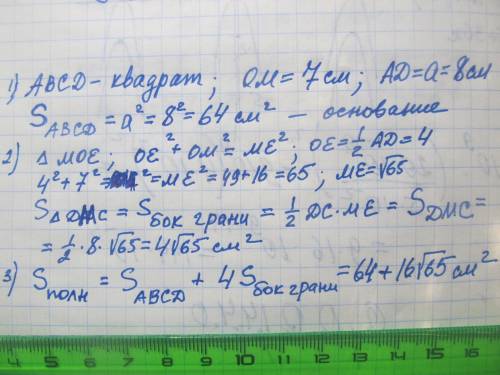 1) ABCD – квадрат; OM = 7 см; AD = a = 8 см
S_ABCD = a² = 8² = 64 см² – основание
2) Δ MOE; OE² + OM² = ME²; OE = ½ AD = 4
4² + 7² = ME² = 49 + 16 = 65; ME = √65
S_ΔDMC = S_бок грани = ½ DC · ME = S_DMC =
= ½ · 8 · √65 = 4√65 см²
3) S_полн = S_ABCD + 4 S_бок грани = 64 + 16√65 см²
4 5 6 7 8 9 10 11 12 13 14 15 16